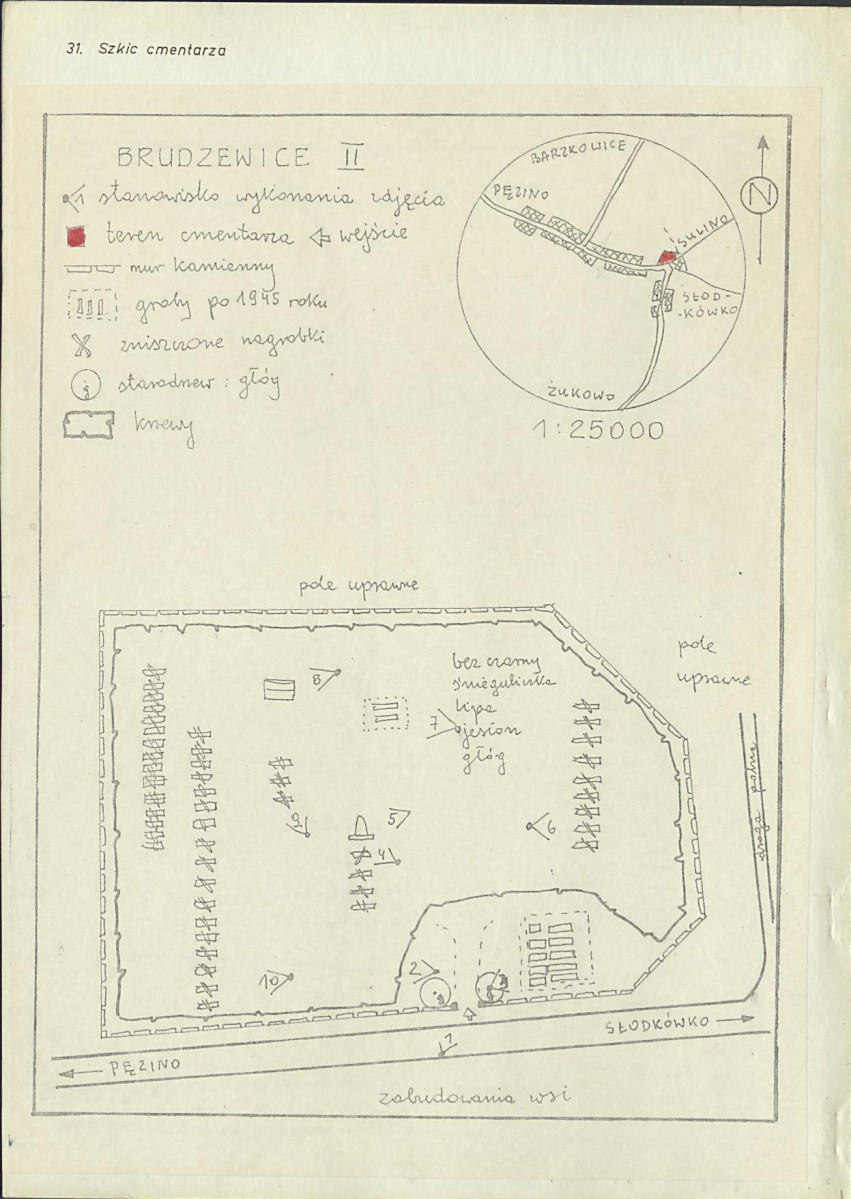 31. Szkic cmentarza
BRUDZEWICE II
1 stanowisko wykonania zdjęcia
teren cmentarza wejście
mur kamienny
groby po 1945 roku
zniszczone nagrobki
g starodrzew : głóg
krzewy
N
BARZKOWICE
PĘZINO
SULINO
SŁOD-
-KÓWKO
ŻUKOWO
1:25000
pole uprawne
pole
uprawne
bez czarny
śnieguliczka
lipa
jesion
głóg
8
7
9
5
4
6
10
2
g
droga polna
1
SŁODKÓWKO
PĘZINO
zabudowania wsi